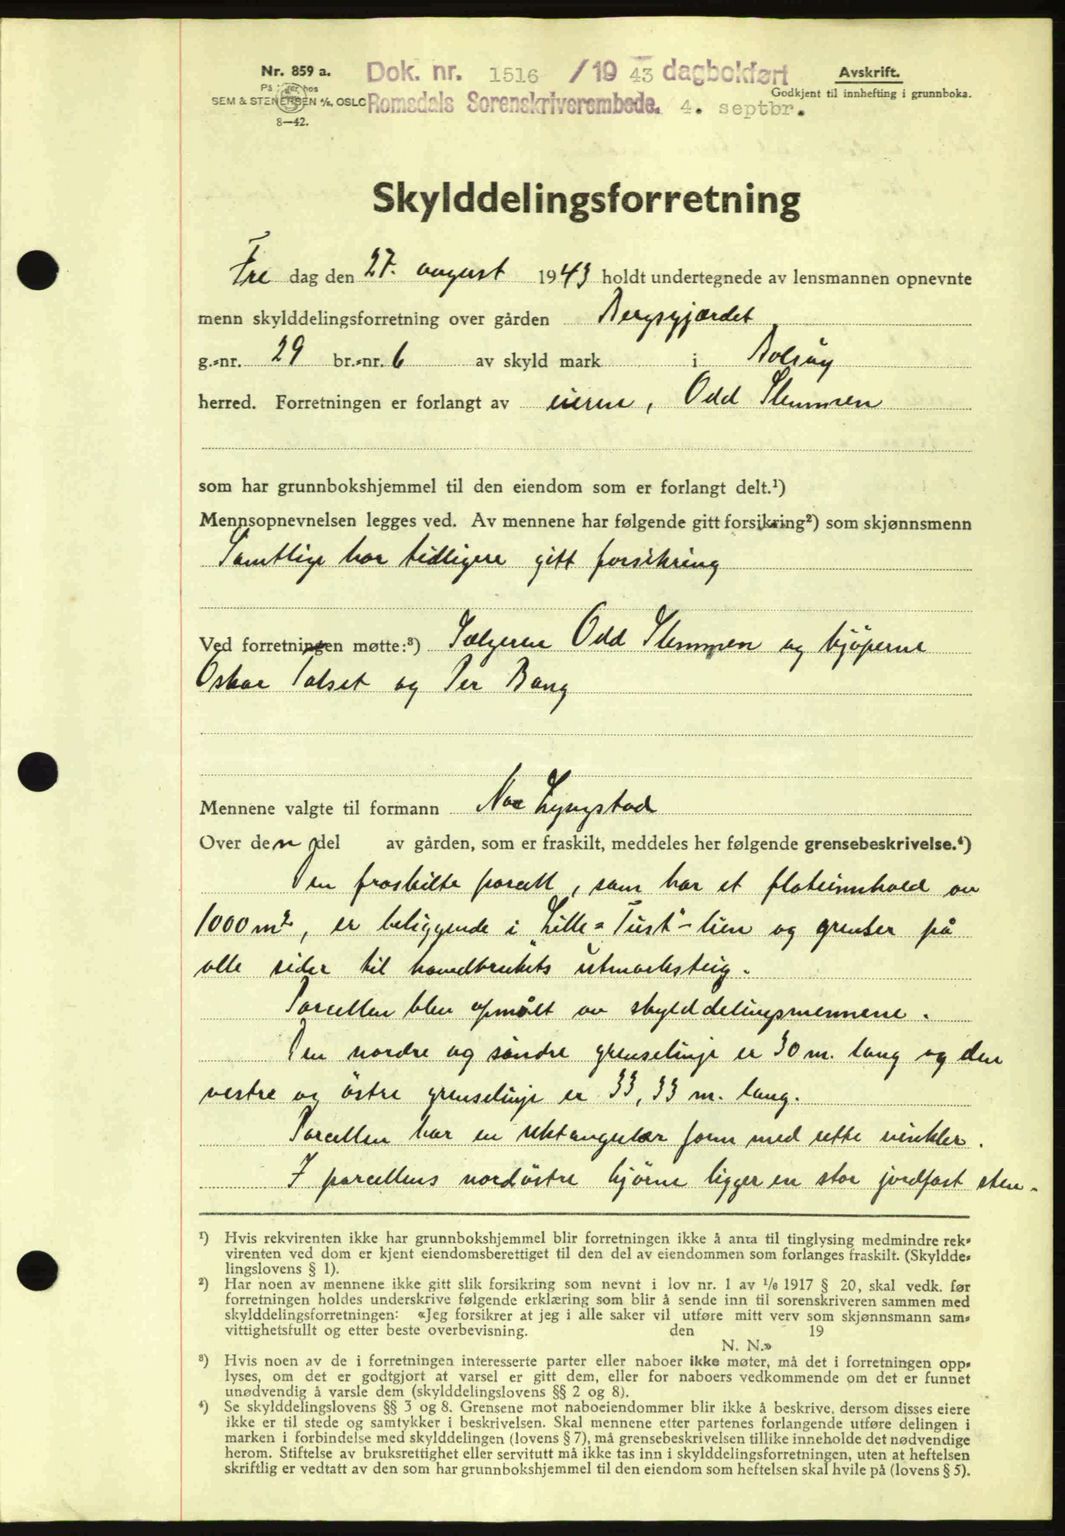 Nr. 859 a.
SEM & STENERSEN A/S, OSLO
8—42.
Dok. nr. 1516 /19 43 dagbokført
Romsdals Sorenskriverembede. 4. septbr.
Avskrift.
Godkjent til innhefting i grunnboka.
Skylddelingsforretning
Fre dag den 27. august 1943 holdt undertegnede av lensmannen opnevnte
menn skylddelingsforretning over gården Bergsgjærdet
g.-nr. 29 br.-nr. 6 av skyld mark i Bolsøy
herred. Forretningen er forlangt av eieren, Odd Stemmen
som har grunnbokshjemmel til den eiendom som er forlangt delt.¹)
Mennsopnevnelsen legges ved. Av mennene har følgende gitt forsikring²) som skjønnsmenn
Samtlige har tidligere gitt forsikring
Ved forretningen møtte:³) Sælgeren Odd Stemmen og kjøperne
Oskar Talset og Per Bang
Mennene valgte til formann Lyngstad
Over den del av gården, som er fraskilt, meddeles her følgende grensebeskrivelse.⁴)
Den fraskilte parcell, som har et flateinnhold av
1000 m², er beliggende i Lille-"Tust"-lien og grenser på
alle sider til hovedbrukets utmarksteig.
Parcellen blev opmålt av skylddelingsmennene.
Den nordre og søndre grenselinje er 30 m. lang og den
vestre og østre grenselinje er 33,33 m. lang.
Parcellen har en rektangulær form med rette vinkler.
I parcellens nordøstre hjørne ligger en stor jordfast sten.
¹) Hvis rekvirenten ikke har grunnbokshjemmel blir forretningen ikke å anta til tinglysing medmindre rek-
virenten ved dom er kjent eiendomsberettiget til den del av eiendommen som forlanges fraskilt. (Skyldde-
lingslovens § 1).
²) Har noen av mennene ikke gitt slik forsikring som nevnt i lov nr. 1 av 1/6 1917 § 20, skal vedk. før
forretningen holdes underskrive følgende erklæring som blir å sende inn til sorenskriveren sammen med
skylddelingsforretningen: «Jeg forsikrer at jeg i alle saker vil utføre mitt verv som skjønnsmann sam-
vittighetsfullt og etter beste overbevisning. den 19
N. N.»
³) Hvis noen av de i forretningen interesserte parter eller naboer ikke møter, må det i forretningen opp-
lyses, om det er godtgjort at varsel er gitt dem, eller for naboers vedkommende om det er funnet
unødvendig å varsle dem (skylddelingslovens §§ 2 og 8).
⁴) Se skylddelingslovens §§ 3 og 8. Grensene mot naboeiendommer blir ikke å beskrive, dersom disses eiere
ikke er til stede og samtykker i beskrivelsen. Skal mennene etter partenes forlangende utføre delingen i
marken i forbindelse med skylddelingen (lovens § 7), må grensebeskrivelsen tillike inneholde det nødvendige
herom. Stiftelse av bruksrettighet eller servitutt må ikke tas inn i skylddelingsforretningen, uten at heftelsen
skriftlig er vedtatt av den som har grunnbokshjemmel til den eiendom som heftelsen skal hvile på (lovens § 5).